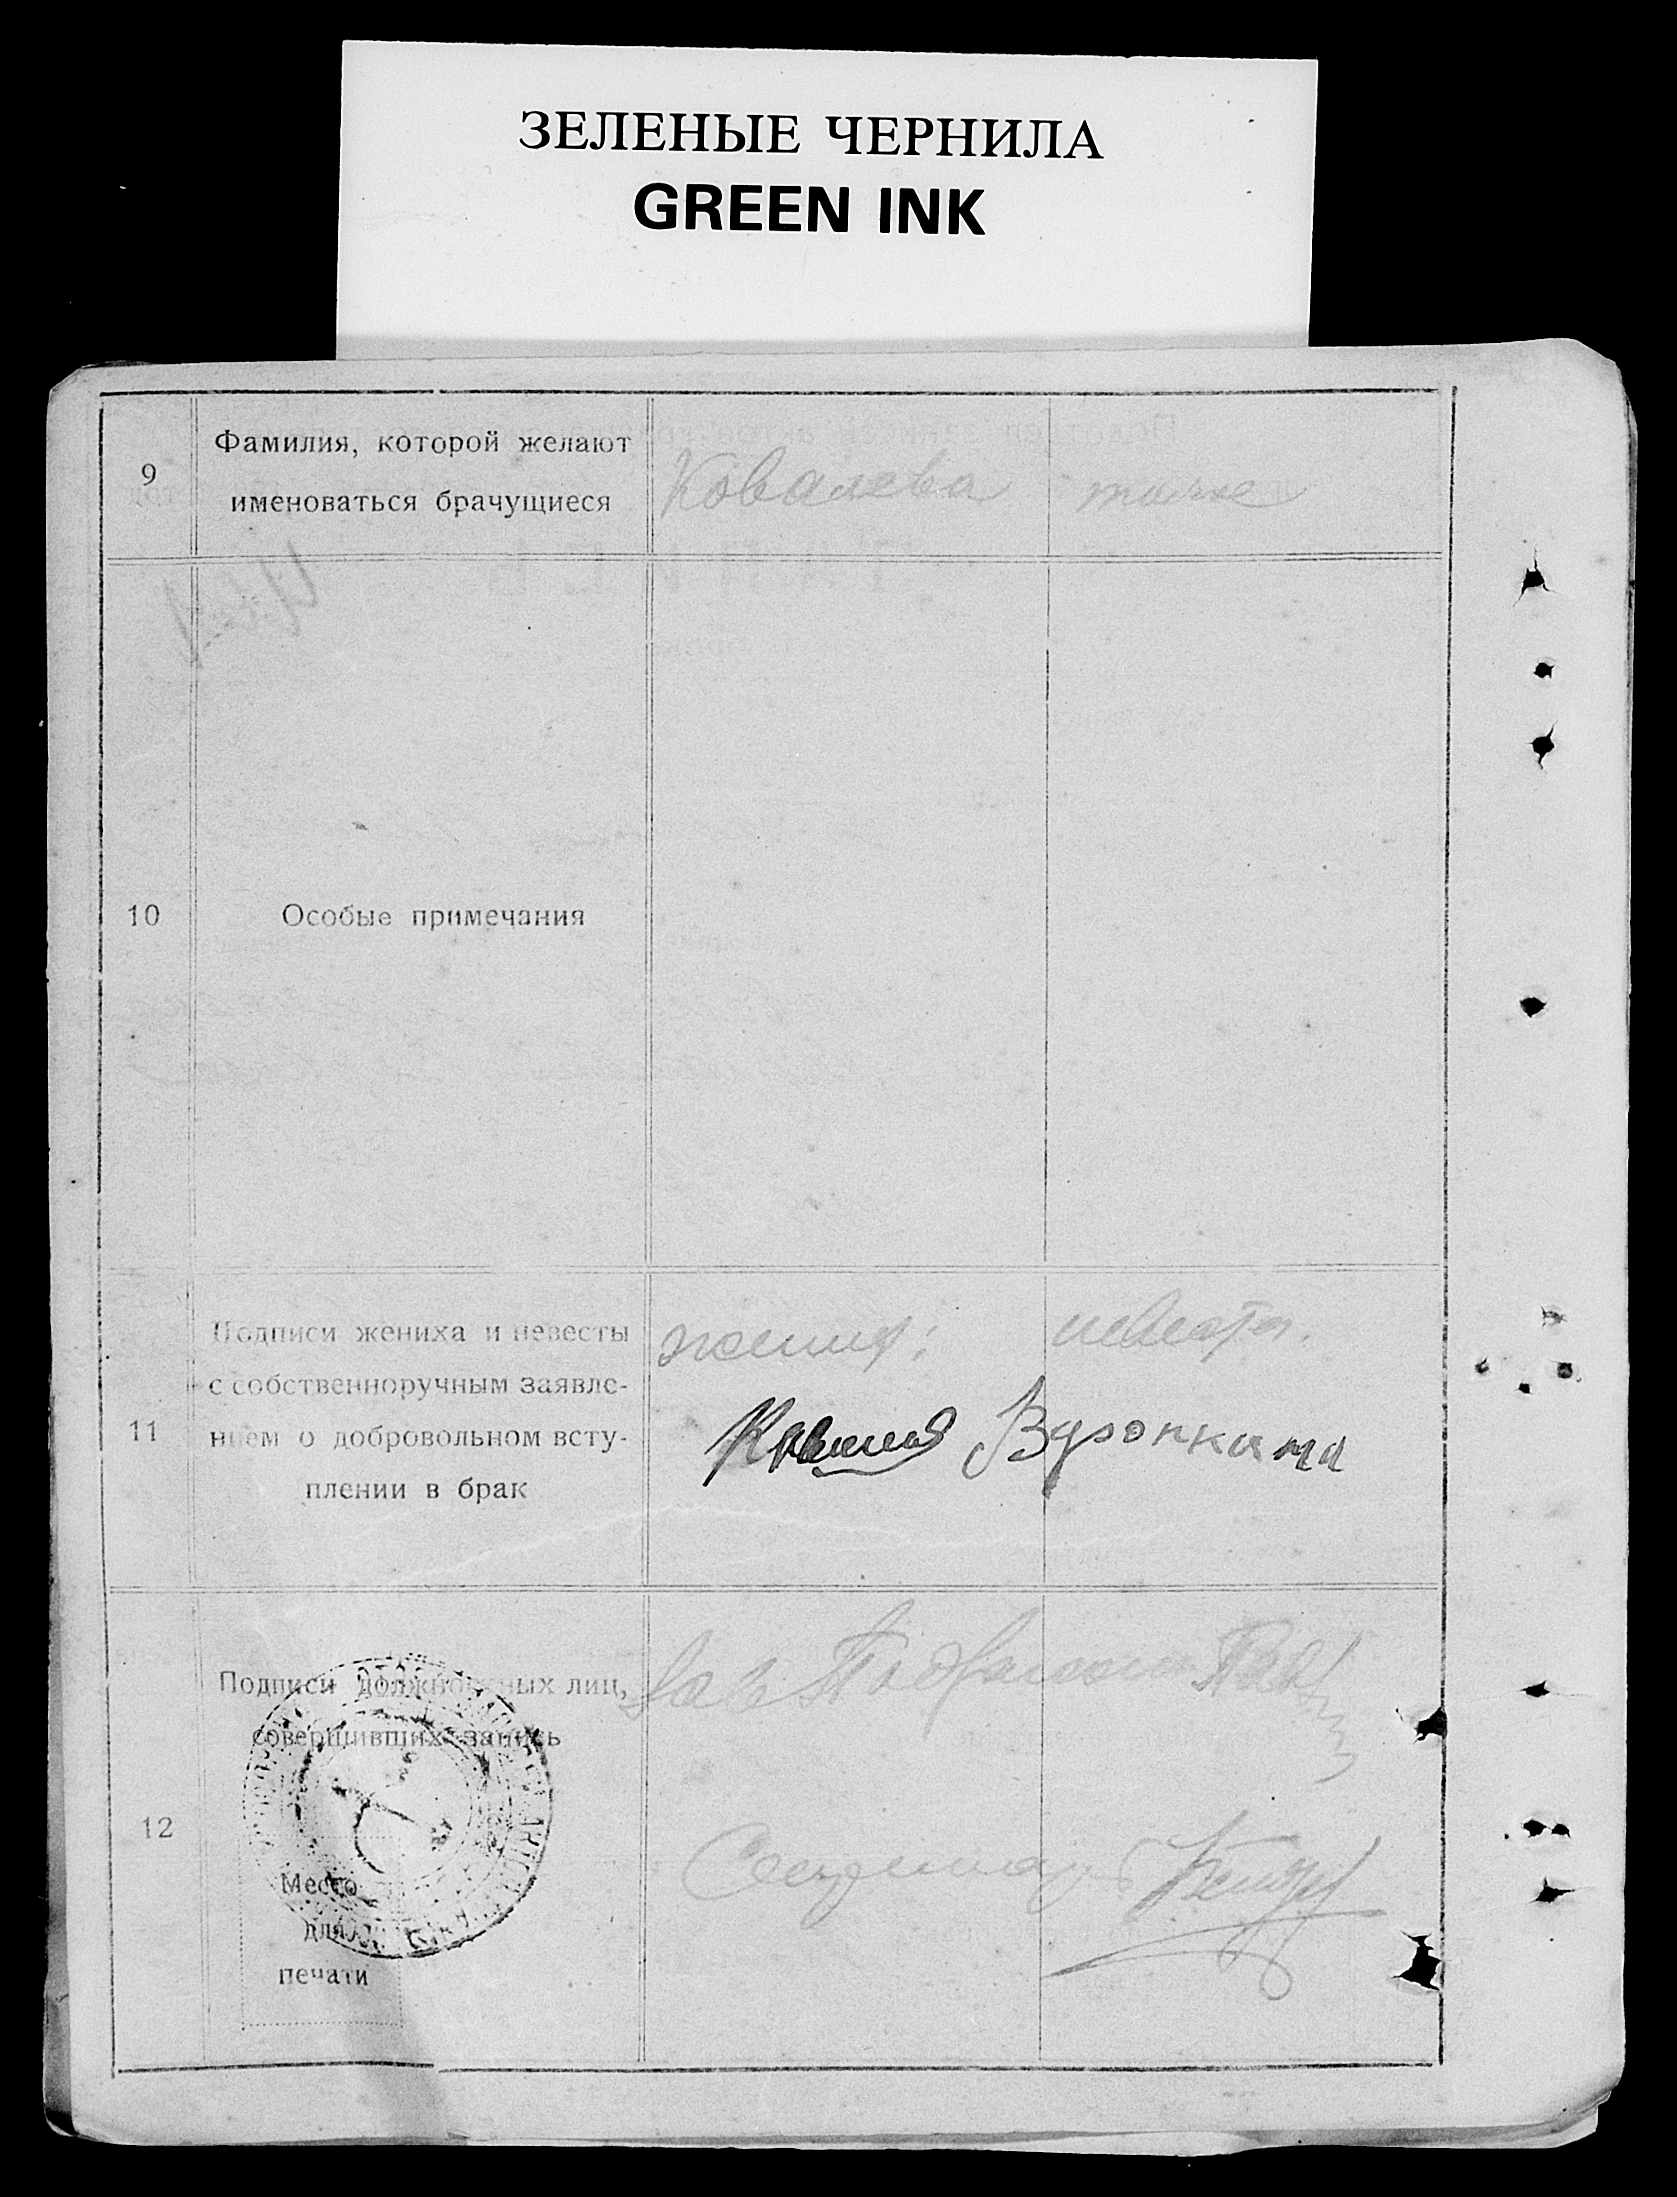 ЗЕЛЕНЫЕ ЧЕРНИЛА
GREEN INK
9
Фамилия, которой желают
именоваться брачущиеся
Ковалева
тоже
10
Особые примечания
11
Подписи жениха и невесты
с собственноручным заявле-
нием о добровольном всту-
плении в брак
жених:
невеста.
12
Подписи должностных лиц,
совершивших запись
Секретарь
Место
для
печати